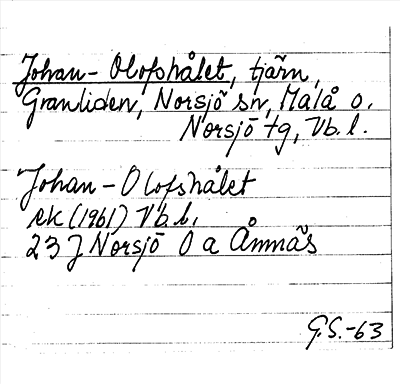 Johan-Olofshålet, tjärn,
Granliden, Norsjö sn, Malå o.
Norsjö tg, Vb. l.
Johan-Olofshålet
ek (1961) Vb.l.
23 J Norsjö O a Åmnäs
G.S.-63